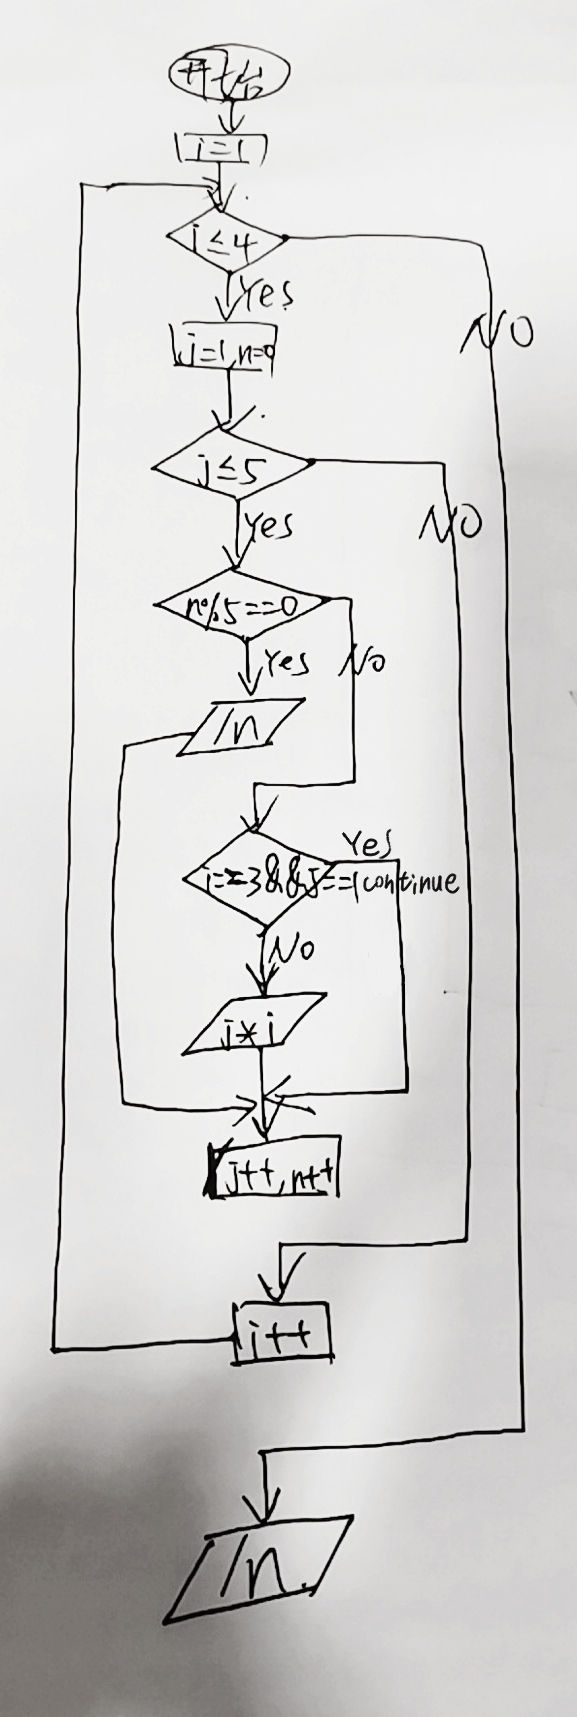 开始
i=1
i≤4
Yes
NO
j=1,n=0
j≤5
Yes
NO
n%5==0
Yes
No
/n
Yes
i==3&&j==1continue
No
j*i
j++,n++
i++
/n